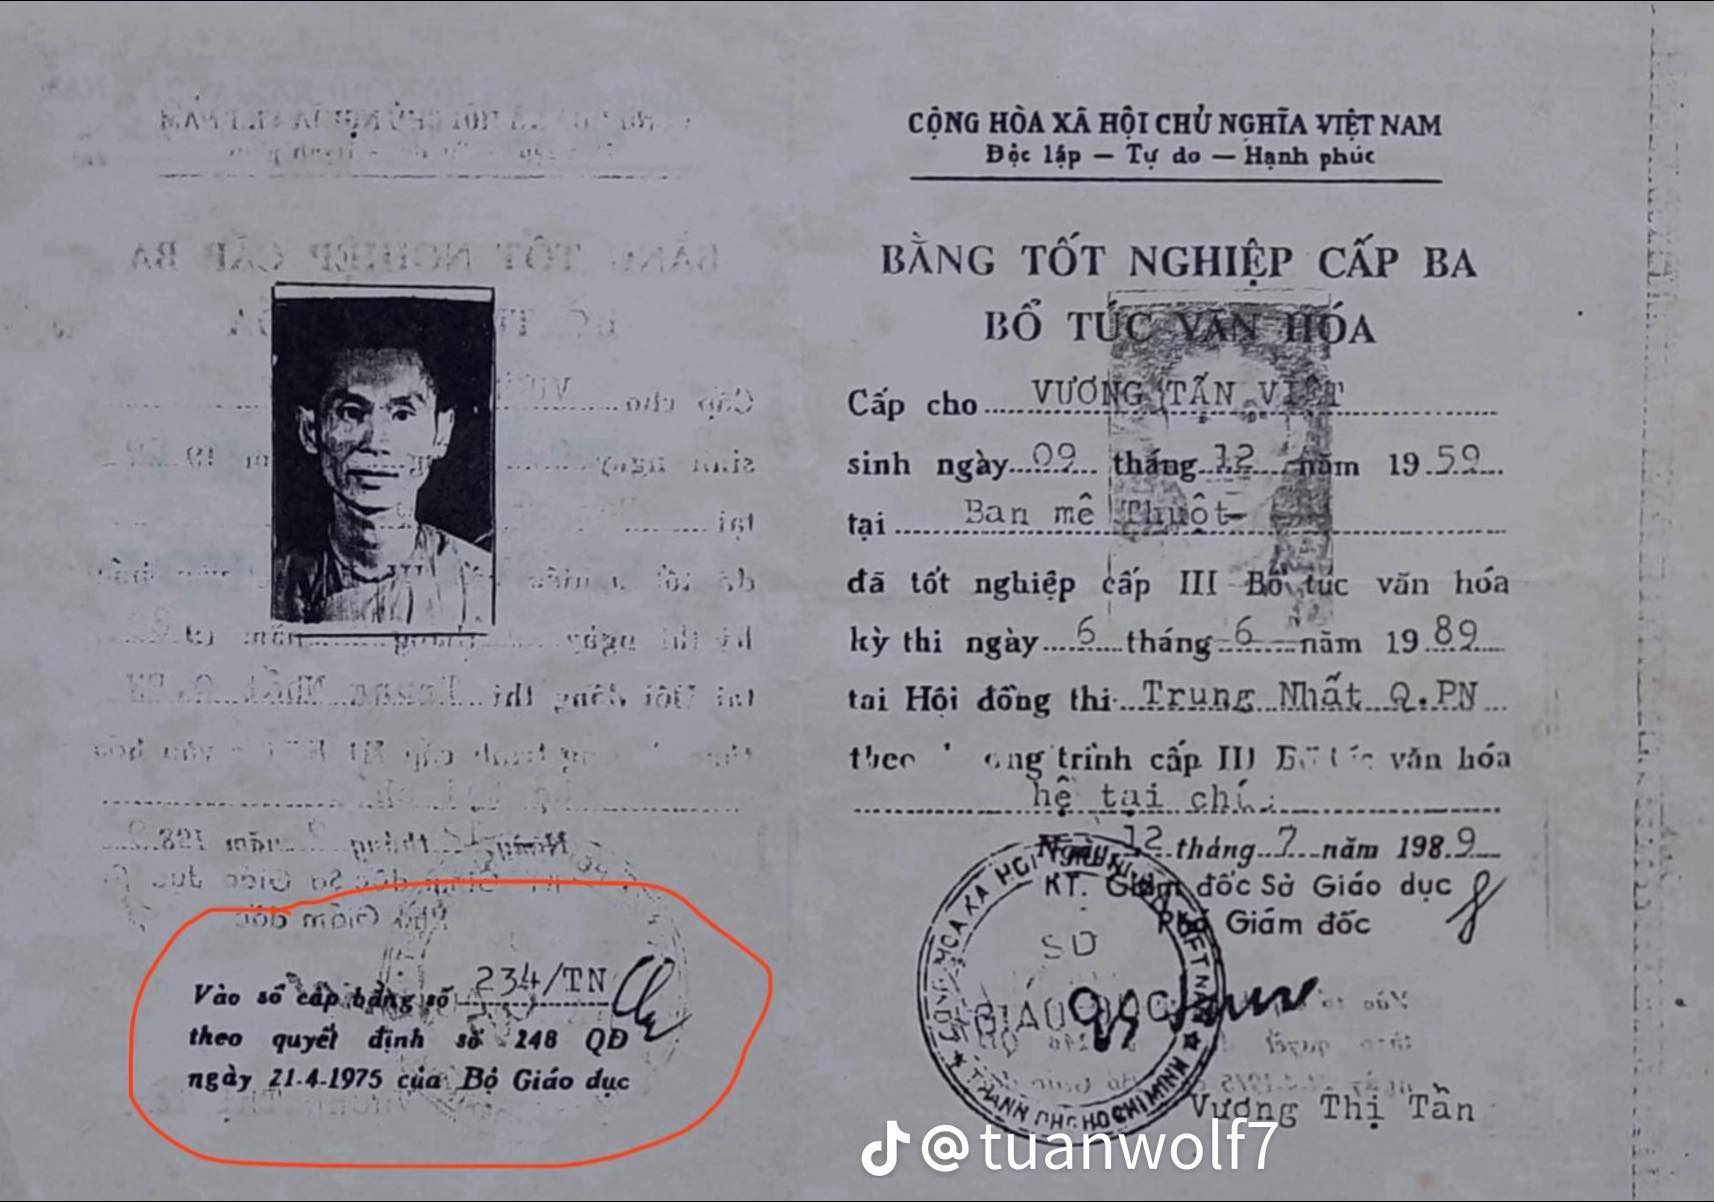 CỘNG HÒA XÃ HỘI CHỦ NGHĨA VIỆT NAM
Độc lập — Tự do — Hạnh phúc
BẰNG TỐT NGHIỆP CẤP BA
BỔ TÚC VĂN HÓA
Cấp cho VƯƠNG TẤN VIỆT
sinh ngày 09 tháng 12 năm 1959
tại Ban mê Thuột
đã tốt nghiệp cấp III Bổ túc văn hóa
kỳ thi ngày 6 tháng 6 năm 1989
tại Hội đồng thi Trung Nhất Q.PN
trình cấp III văn hóa
hệ tại
12 tháng 7 năm 1989
KT. Giám đốc Sở Giáo dục
Phó Giám đốc
SỞ
GIÁO DỤC
THÀNH PHỐ HỒ CHÍ MINH
Vương Thị Tần
Vào sổ cấp bằng số 234/TN
theo quyết định số 248 QĐ
ngày 21-4-1975 của Bộ Giáo dục
@tuanwolf7